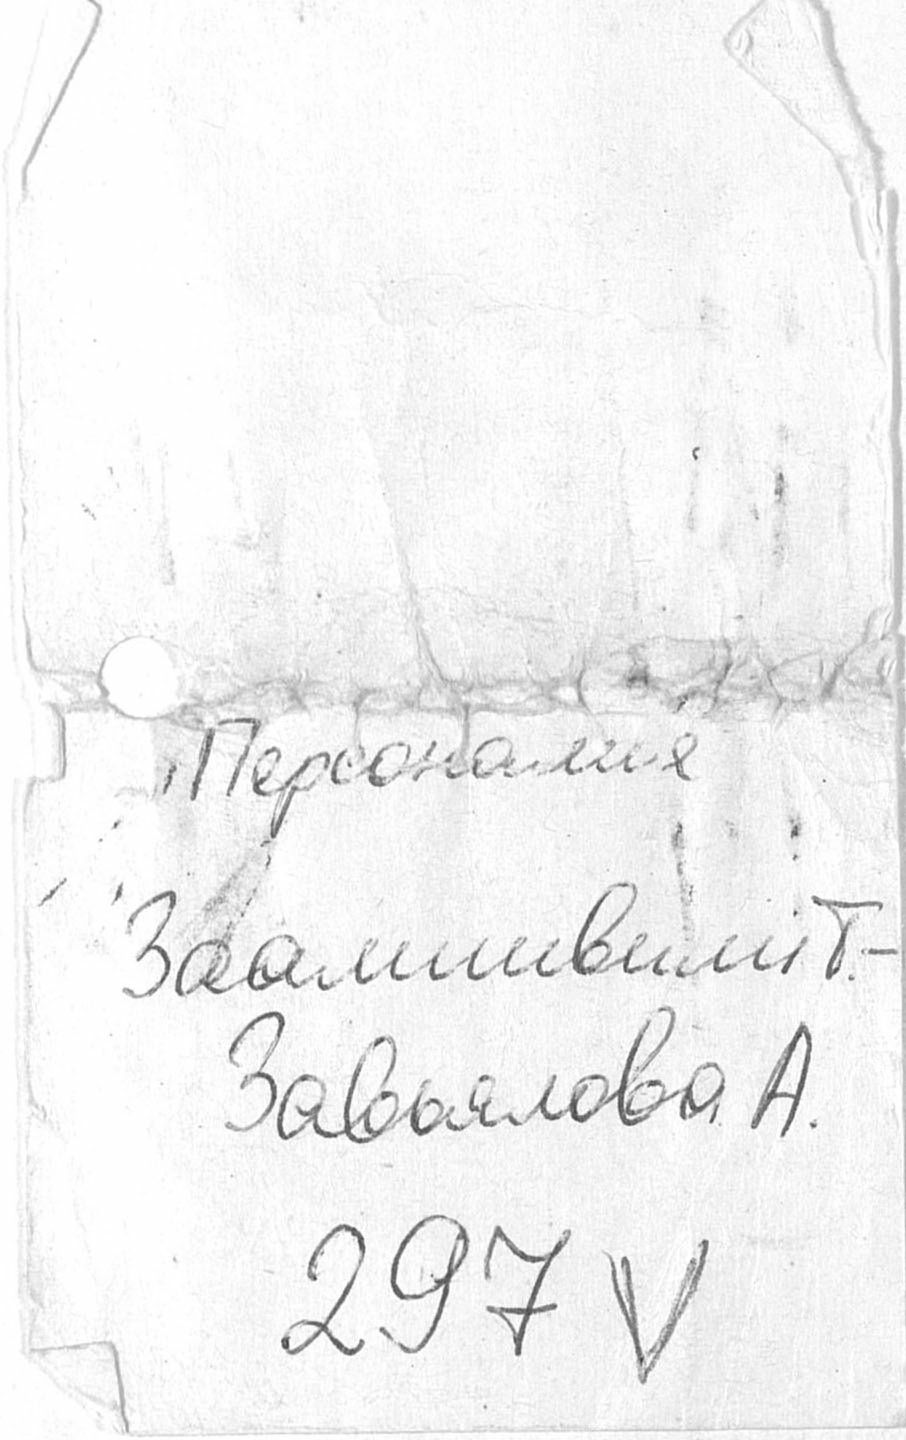 Персоналия
Заалишвили Т.-
Завьялова А.
297 V